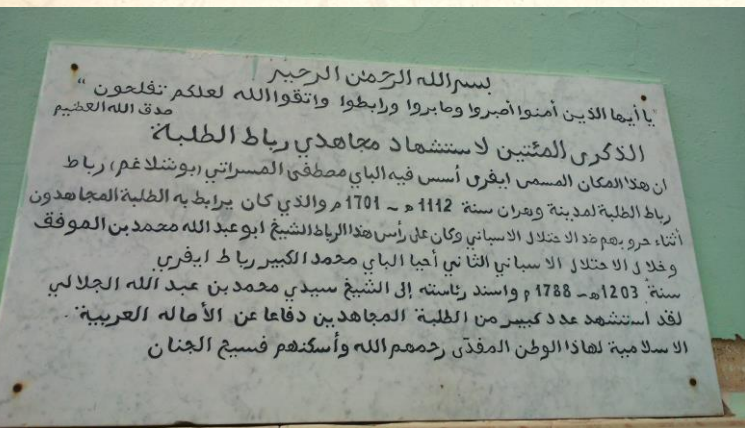 بسم الله الرحمن الرحيم
يا أيها الذين آمنوا أصبروا وصابروا ورابطوا واتقوا الله لعلكم تفلحون "
صدق الله العظيم
الذكرى المئتين لاستشهاد مجاهدي رباط الطلبة
ان هذا المكان المسمى ايفرى أسس فيه الباي مصطفى المسراتي (بوشلاغم) رباط
رباط الطلبة لمدينة وهران سنة 1112 ه - 1701 م والذي كان يرابط به الطلبة المجاهدون
أثناء حروبهم ضد الاحتلال الاسباني وكان على رأس هذا الرباط الشيخ ابو عبد الله محمد بن الموفق
وخلال الاحتلال الاسباني الثاني أحيا الباي محمد الكبير رباط ايفري
سنة 1203ه - 1788 م واسند رئاسته إلى الشيخ سيدي محمد بن عبد الله الجلالي
لقد استشهد عدد كبير من الطلبة المجاهدين دفاعا عن الأصاله العربية .
الاسلامية لهاذا الوطن المفدى رحمهم الله وأسكنهم فسيح الجنان